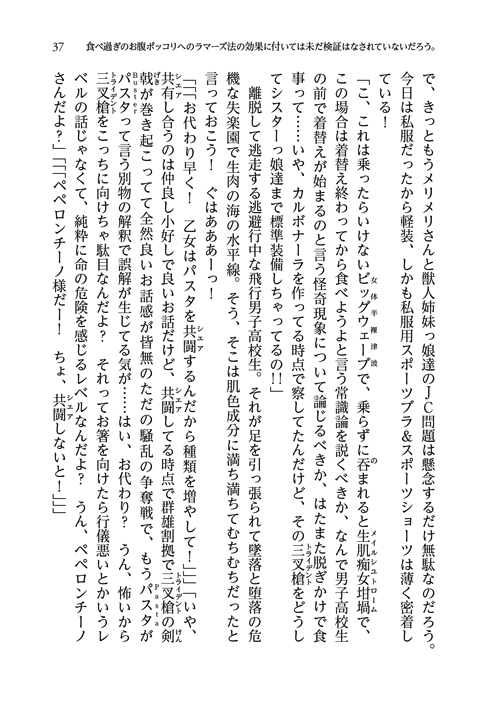 37
食べ過ぎのお腹ポッコリへのラマーズ法の効果に付いては未だ検証はなされていないだろう。
で、きっともうメリメリさんと獣人姉妹っ娘達のJC問題は懸念するだけ無駄なのだろう。
今日は私服だったから軽装、しかも私服用スポーツブラ&スポーツショーツは薄く密着し
ている!
「こ、これは乗ったらいけないビッグウェーブで、乗らずに呑まれると生肌痴女坩堝で、
この場合は着替え終わってから食べようよと言う常識論を説くべきか、なんで男子高校生
の前で着替えが始まるのと言う怪奇現象について論じるべきか、はたまた脱ぎかけで食
事って……いや、カルボナーラを作ってる時点で察してたんだけど、その三叉槍をどうし
てシスターっ娘達まで標準装備しちゃってるの!!」
離脱して逃走する逃避行中な飛行男子高校生。それが足を引っ張られて墜落と堕落の危
機な失楽園で生肉の海の水平線。そう、そこは肌色成分に満ち満ちてむちむちだったと
言っておこう! ぐはあああーっ!
「「「お代わり早く! 乙女はパスタを共闘するんだから種類を増やして!」」」「いや、
共有し合うのは仲良し小好しで良いお話だけど、共闘してる時点で群雄割拠で三叉槍の剣
戟が巻き起こってて全然良いお話感が皆無のただの騒乱の争奪戦で、もうパスタが
バスタって言う別物の解釈で誤解が生じてる気が……はい、お代わり? うん、怖いから
三叉槍をこっちに向けちゃ駄目なんだよ? それってお箸を向けたら行儀悪いとかいうレ
ベルの話じゃなくて、純粋に命の危険を感じるレベルなんだよ? うん、ペペロンチーノ
さんだよ?」「「「ペペロンチーノ様だー! ちょ、共闘しないと!」」」